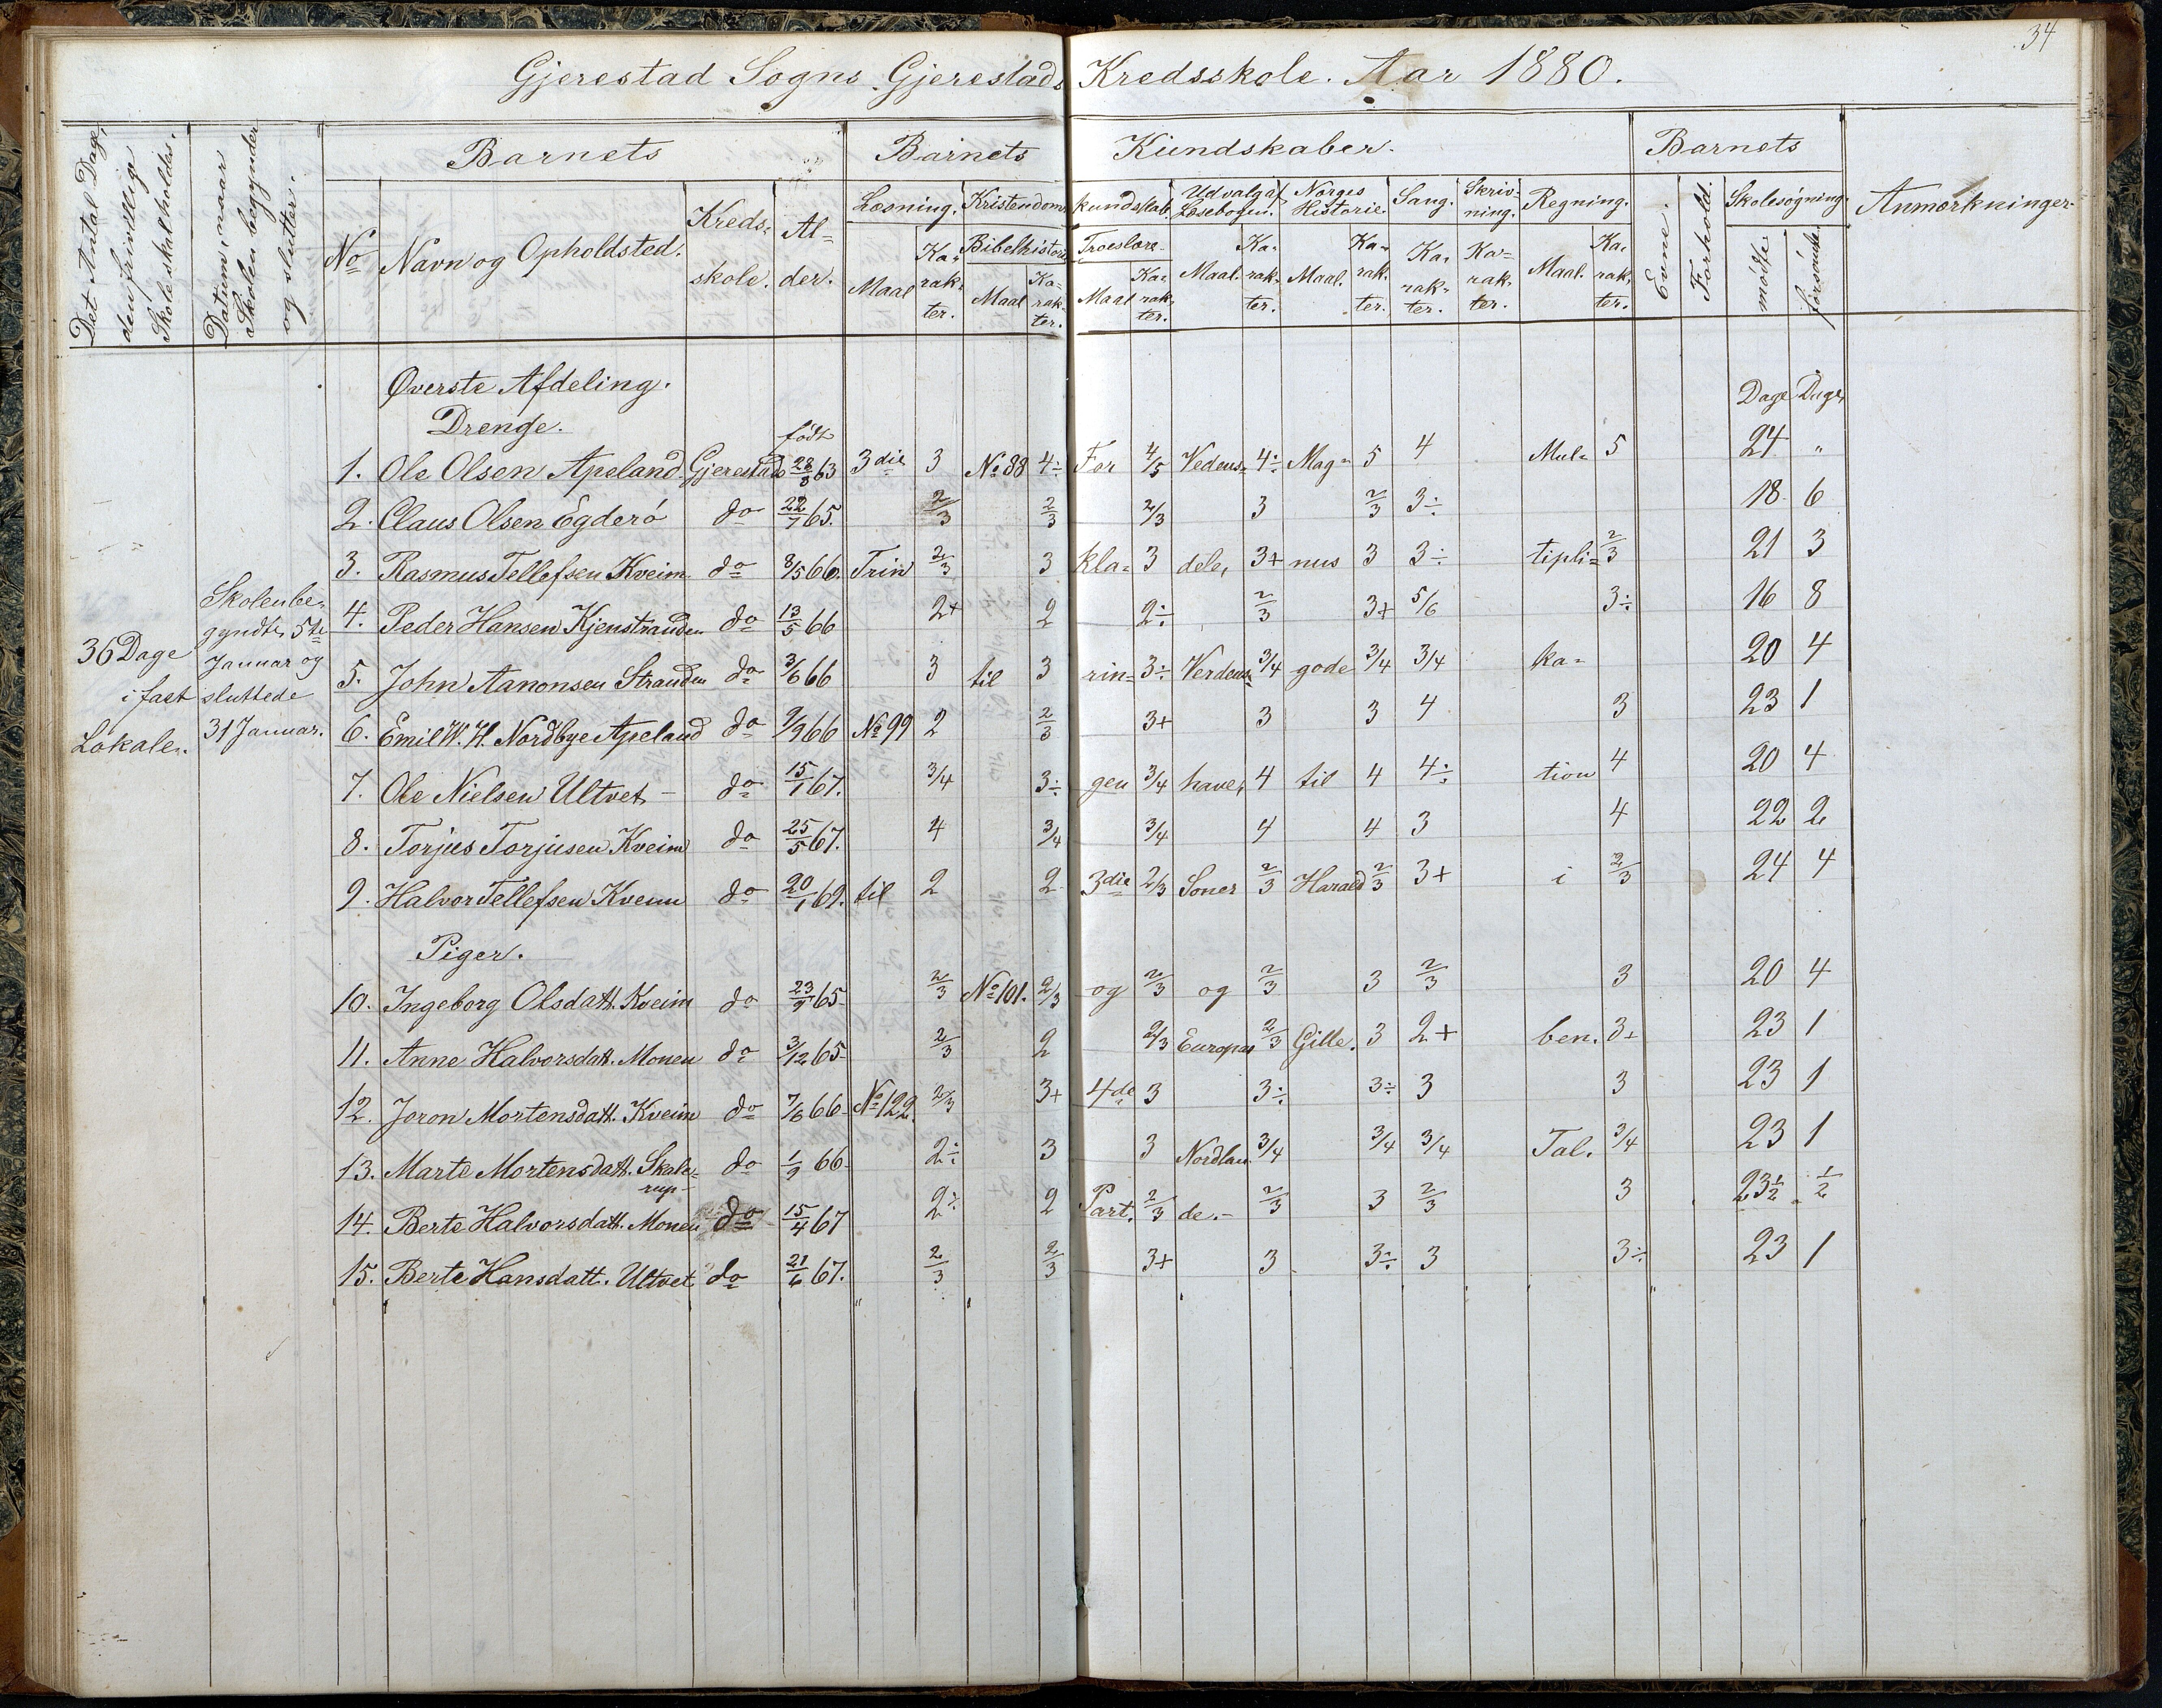 34
Gjerestad Sogns Gjerestads Kredsskole. Aar 1880.
Det Antal Dage, den frivillige Skole skal holdes.
Datum, naar Skolen begynder og slutter.
Barnets
Barnets Kundskaber.
Barnets
Anmærkninger
No Navn og Opholdsted. Kreds-skole. Al-der.
Læsning. Kristendoms kundskab. Udvalg af Læsebogen. Norges Historie. Sang. Skriv-ning. Regning. Evne. Forhold. Skolesøgning.
Bibelhistorie Troeslære
Maal Ka-rak-ter. Maal Ka-rak-ter. Maal Ka-rak-ter. Maal. Ka-rak-ter. Maal. Ka-rak-ter. Ka-rak-ter. Ka-rak-ter. Maal. Ka-rak-ter. mødte forsømte
Øverste Afdeling.
Dage Dage
Drenge.
født
1. Ole Olsen Apeland Gjerestad 28/8 63 3die 3 No 88 4÷ For 4/5 Vedens- 4÷ Mag- 5 4 Mul- 5 24 "
2. Claus Olsen Egderö do 22/7 65. 2/3 2/3 2/3 3 2/3 3÷ 18 6
3. Rasmus Tellefsen Kveim do 8/5 66. Trin 2/3 3 kla- 3 dele, 3+ nus 3 3÷ tipli- 2/3 21 3
4. Peder Hansen Kjenstranden do 13/5 66 2+ 2 2÷ 2/3 3+ 5/6 3÷ 16 8
5. John Aanonsen Stranden do 3/6 66 3 til 3 rin- 3÷ Verdens- 3/4 gode 3/4 3/4 ka- 20 4
6. Emil W. H. Nordbye Apeland do 9/9 66 No 99 2 2/3 3+ 3 3 4 3 23 1
7. Ole Nielsen Ultvet do 15/1 67. 3/4 3÷ gen 3/4 have, 4 til 4 4÷ tion 4 20 4
8. Torjus Torjusen Kveim do 25/5 67. 4 3/4 3/4 4 4 3 4 22 2
9. Halvor Tellefsen Kveim do 20/1 69. til 2 2 3die 2/3 Soner 2/3 Harald 2/3 3+ i 2/3 24 4
36 Dage i fast Lokale.
Skolen be-gyndte 5te Januar og sluttede 31 Januar.
Piger.
10. Ingeborg Olsdatt. Kveim do 23/9 65 2/3 No 101. 2/3 og 2/3 og 2/3 3 2/3 3 20 4
11. Anne Halvorsdatt. Monen do 3/12 65 2/3 2 2/3 Europas 2/3 Gille. 3 2+ ben. 3+ 23 1
12. Joron Mortensdatt. Kveim do 7/6 66 No 122. 2/3 3+ 4de 3 3÷ 3÷ 3 3 23 1
13. Marte Mortensdatt. Skale-rup do 1/9 66 2÷ 3 3 Nordlan- 3/4 3/4 3/4 Tal. 3/4 23 1
14. Berte Halvorsdatt. Monen do 15/4 67 2÷ 2 Part. 2/3 de. 2/3 3 2/3 3 23½ ½
15. Berte Hansdatt. Ultvet do 21/6 67. 2/3 2/3 3+ 3 3÷ 3 3÷ 23 1